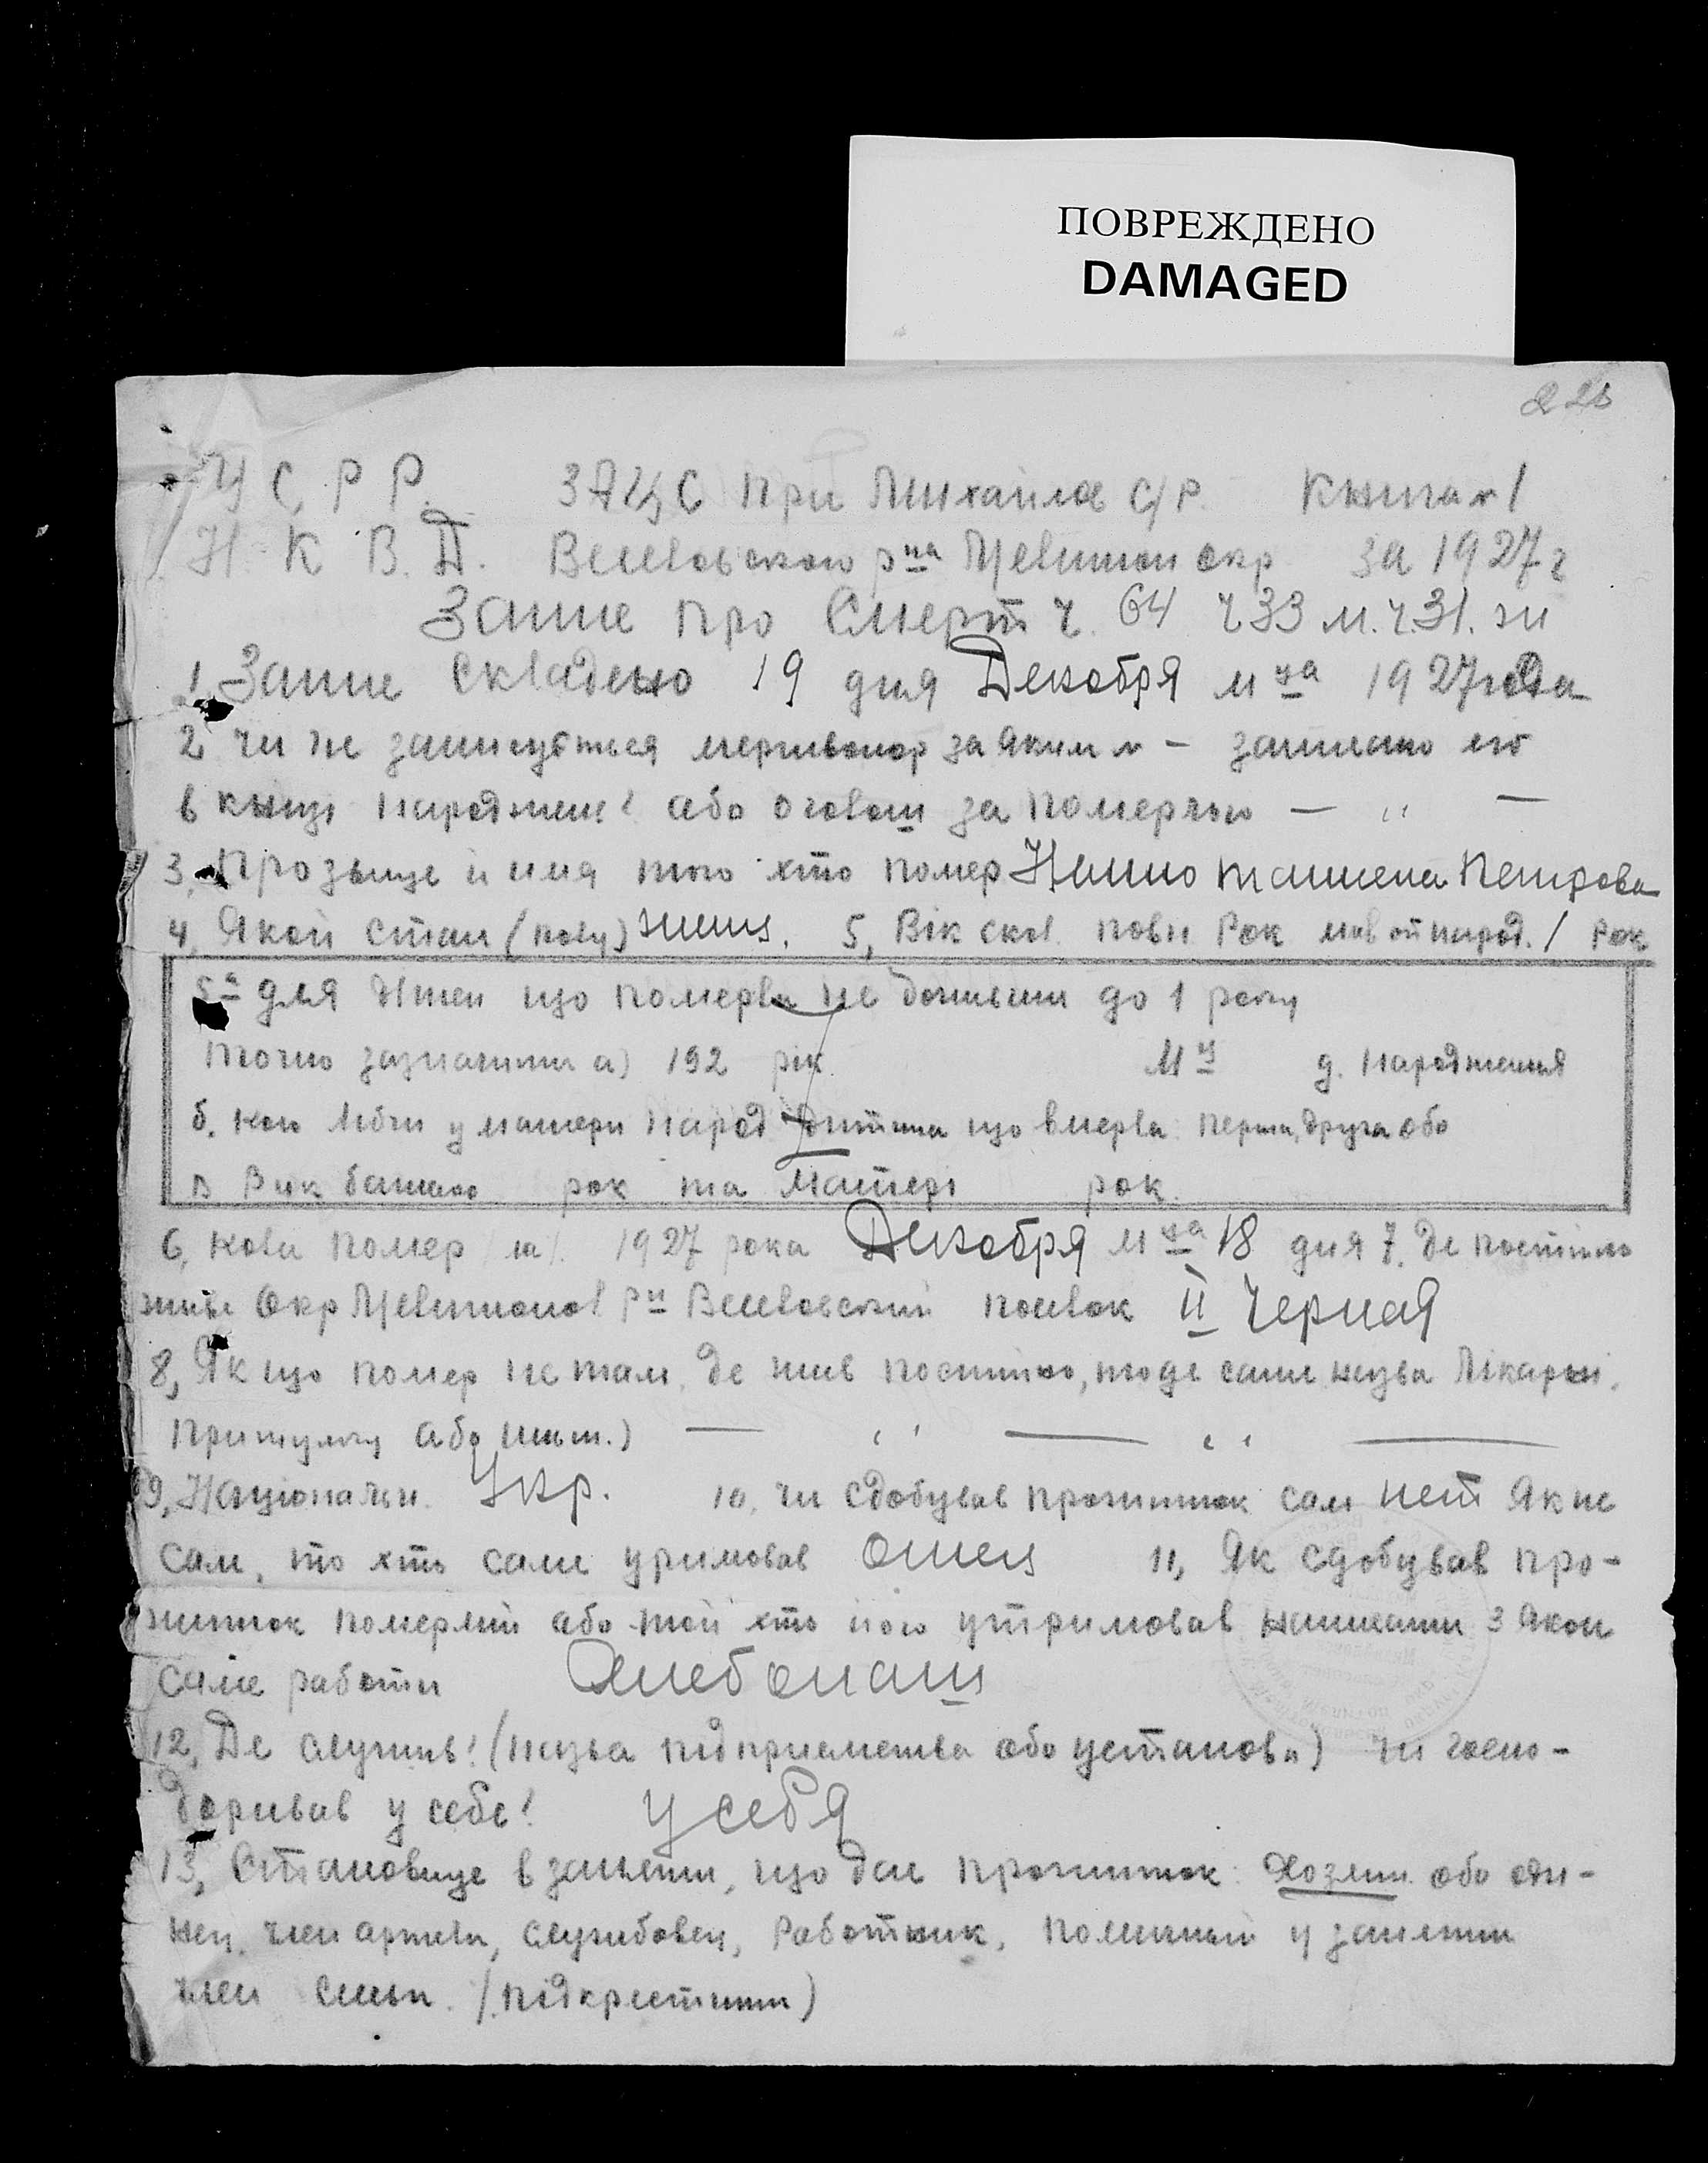 ПОВРЕЖДЕНО
DAMAGED
У С Р Р. ЗАЦС при Михайлов С/Р. Книга №1
Н. К. В. Д. рна окр за 1927 г
Запис про Смерт ч. 64 ч 33 м. ч. 31. жи
1 Запис складено 19 дня Декабря м ца 1927 года
2 чи не записується мертвонар за яким № – записано его
в книзі народжен! або оголош за померлого — " —
3, Прозвище и имя того хто помер Петрова
4, Якой стан (полу) женs. 5, Вік скол повн Рок народ. 1 Рок
5а для дитей що померли не доживши до 1 року
точно зазначити а) 192 рік. М ц д. народження
б. у матери народ дитина що вмерла перша, друга обо
в Вик батько рок та Матері рок.
6, коли помер ла/. 1927 рока Декабря м ца 18 дня 7. Де постійно
живе Окр рн посівок II Черная
8, Якщо помер не там, де жив постійно, тоде саме назва Лікарні,
Притулку або инш.) — " — " —
9, Націоналн. Укр. 10, чи сдобував прожиток сам нет Як не
сам, то хто саме утримовав отец 11, Як сдобував про-
житок померлий або той хто його утримовав написати з якои
саме работи Хлебопаш
12, Де служив! (назва підприемства обо установи) чи госпо-
даривав у себе! у себя
13, Становище в занятти, що дае прожиток: Хозяин обо оди-
нец, член артели, службовец, Работник, помичный у занятти
член симьи. (підкреслити)